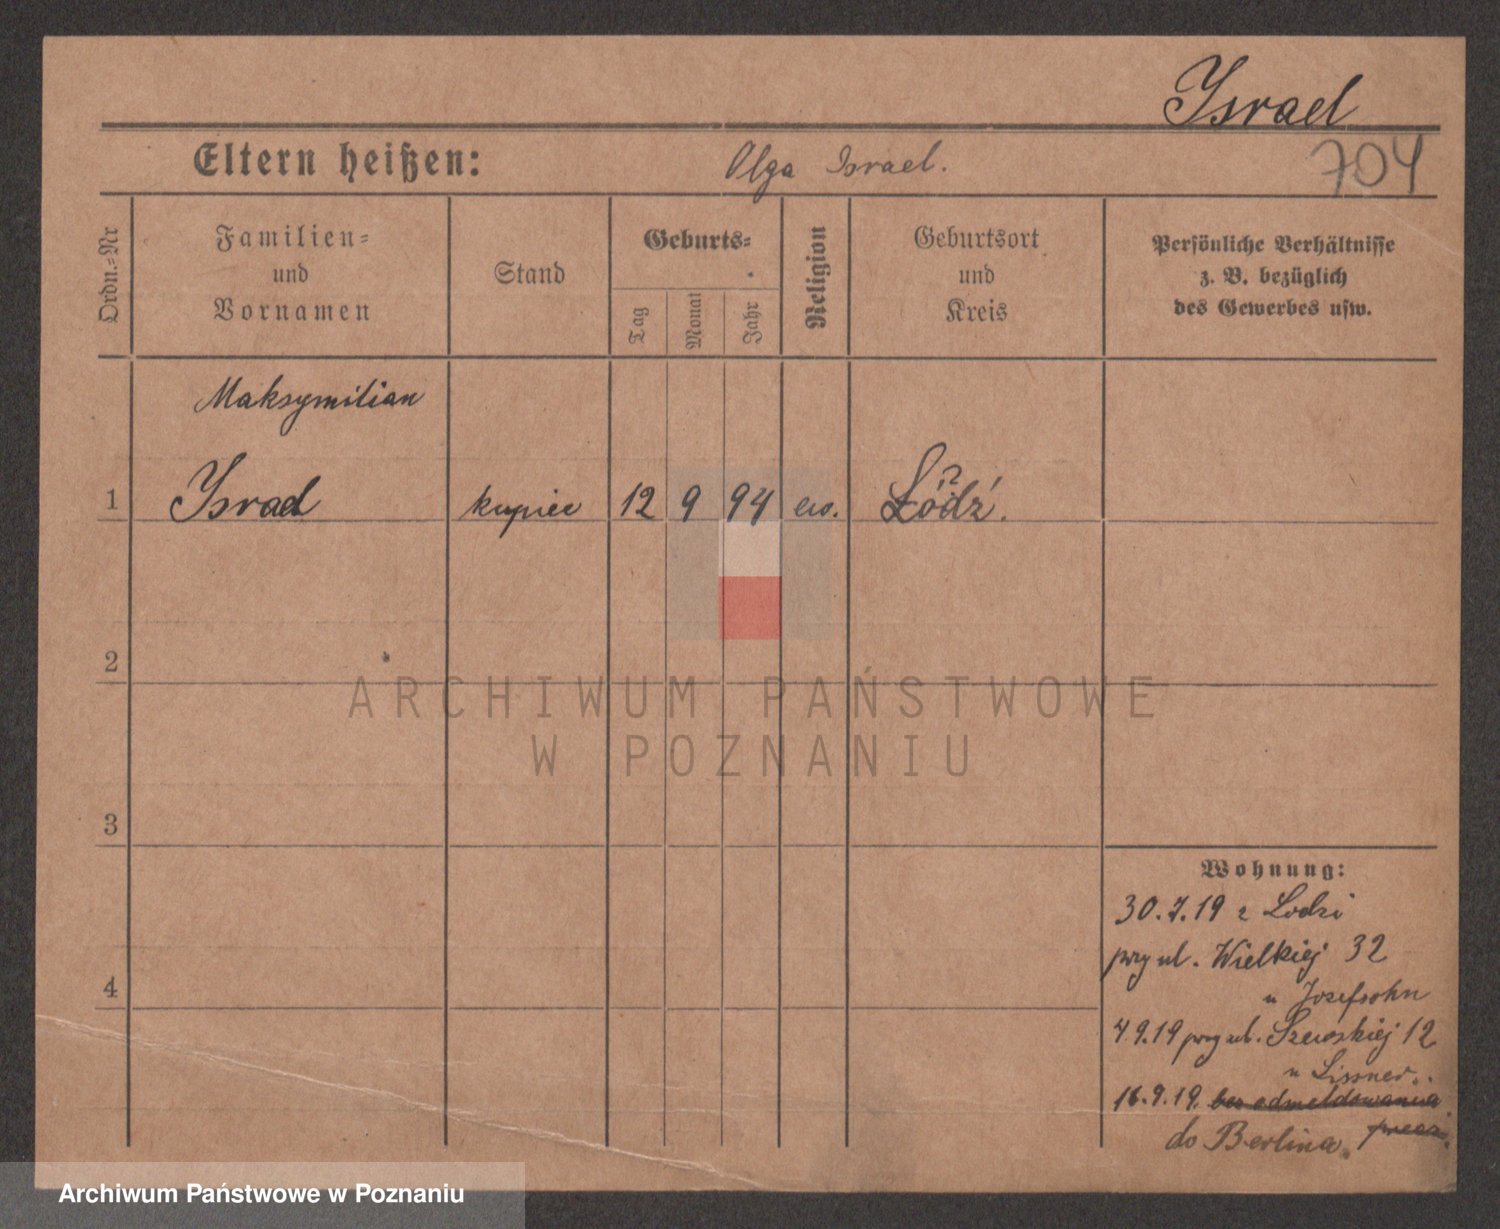 Israel
Eltern heißen: Olga Israel. 704
Ordn.=Nr
Familien=
und
Vornamen
Stand
Geburts=
Tag
Monat
Jahr
Religion
Geburtsort
und
Kreis
Persönliche Verhältnisse
z. B. bezüglich
des Gewerbes usw.
Maksymilian
1 Israel kupiec 12 9 94 ew. Łódź.
2
3
4
Wohnung:
30.7.19 z Lodzi
przy ul. Wielkiej 32
u Josefsohn
4.9.19 przy ul. Szewskiej 12
u Lissner.
16.9.19. bez odmeldowania
do Berlina.
ARCHIWUM PAŃSTWOWE
W POZNANIU
Archiwum Państwowe w Poznaniu